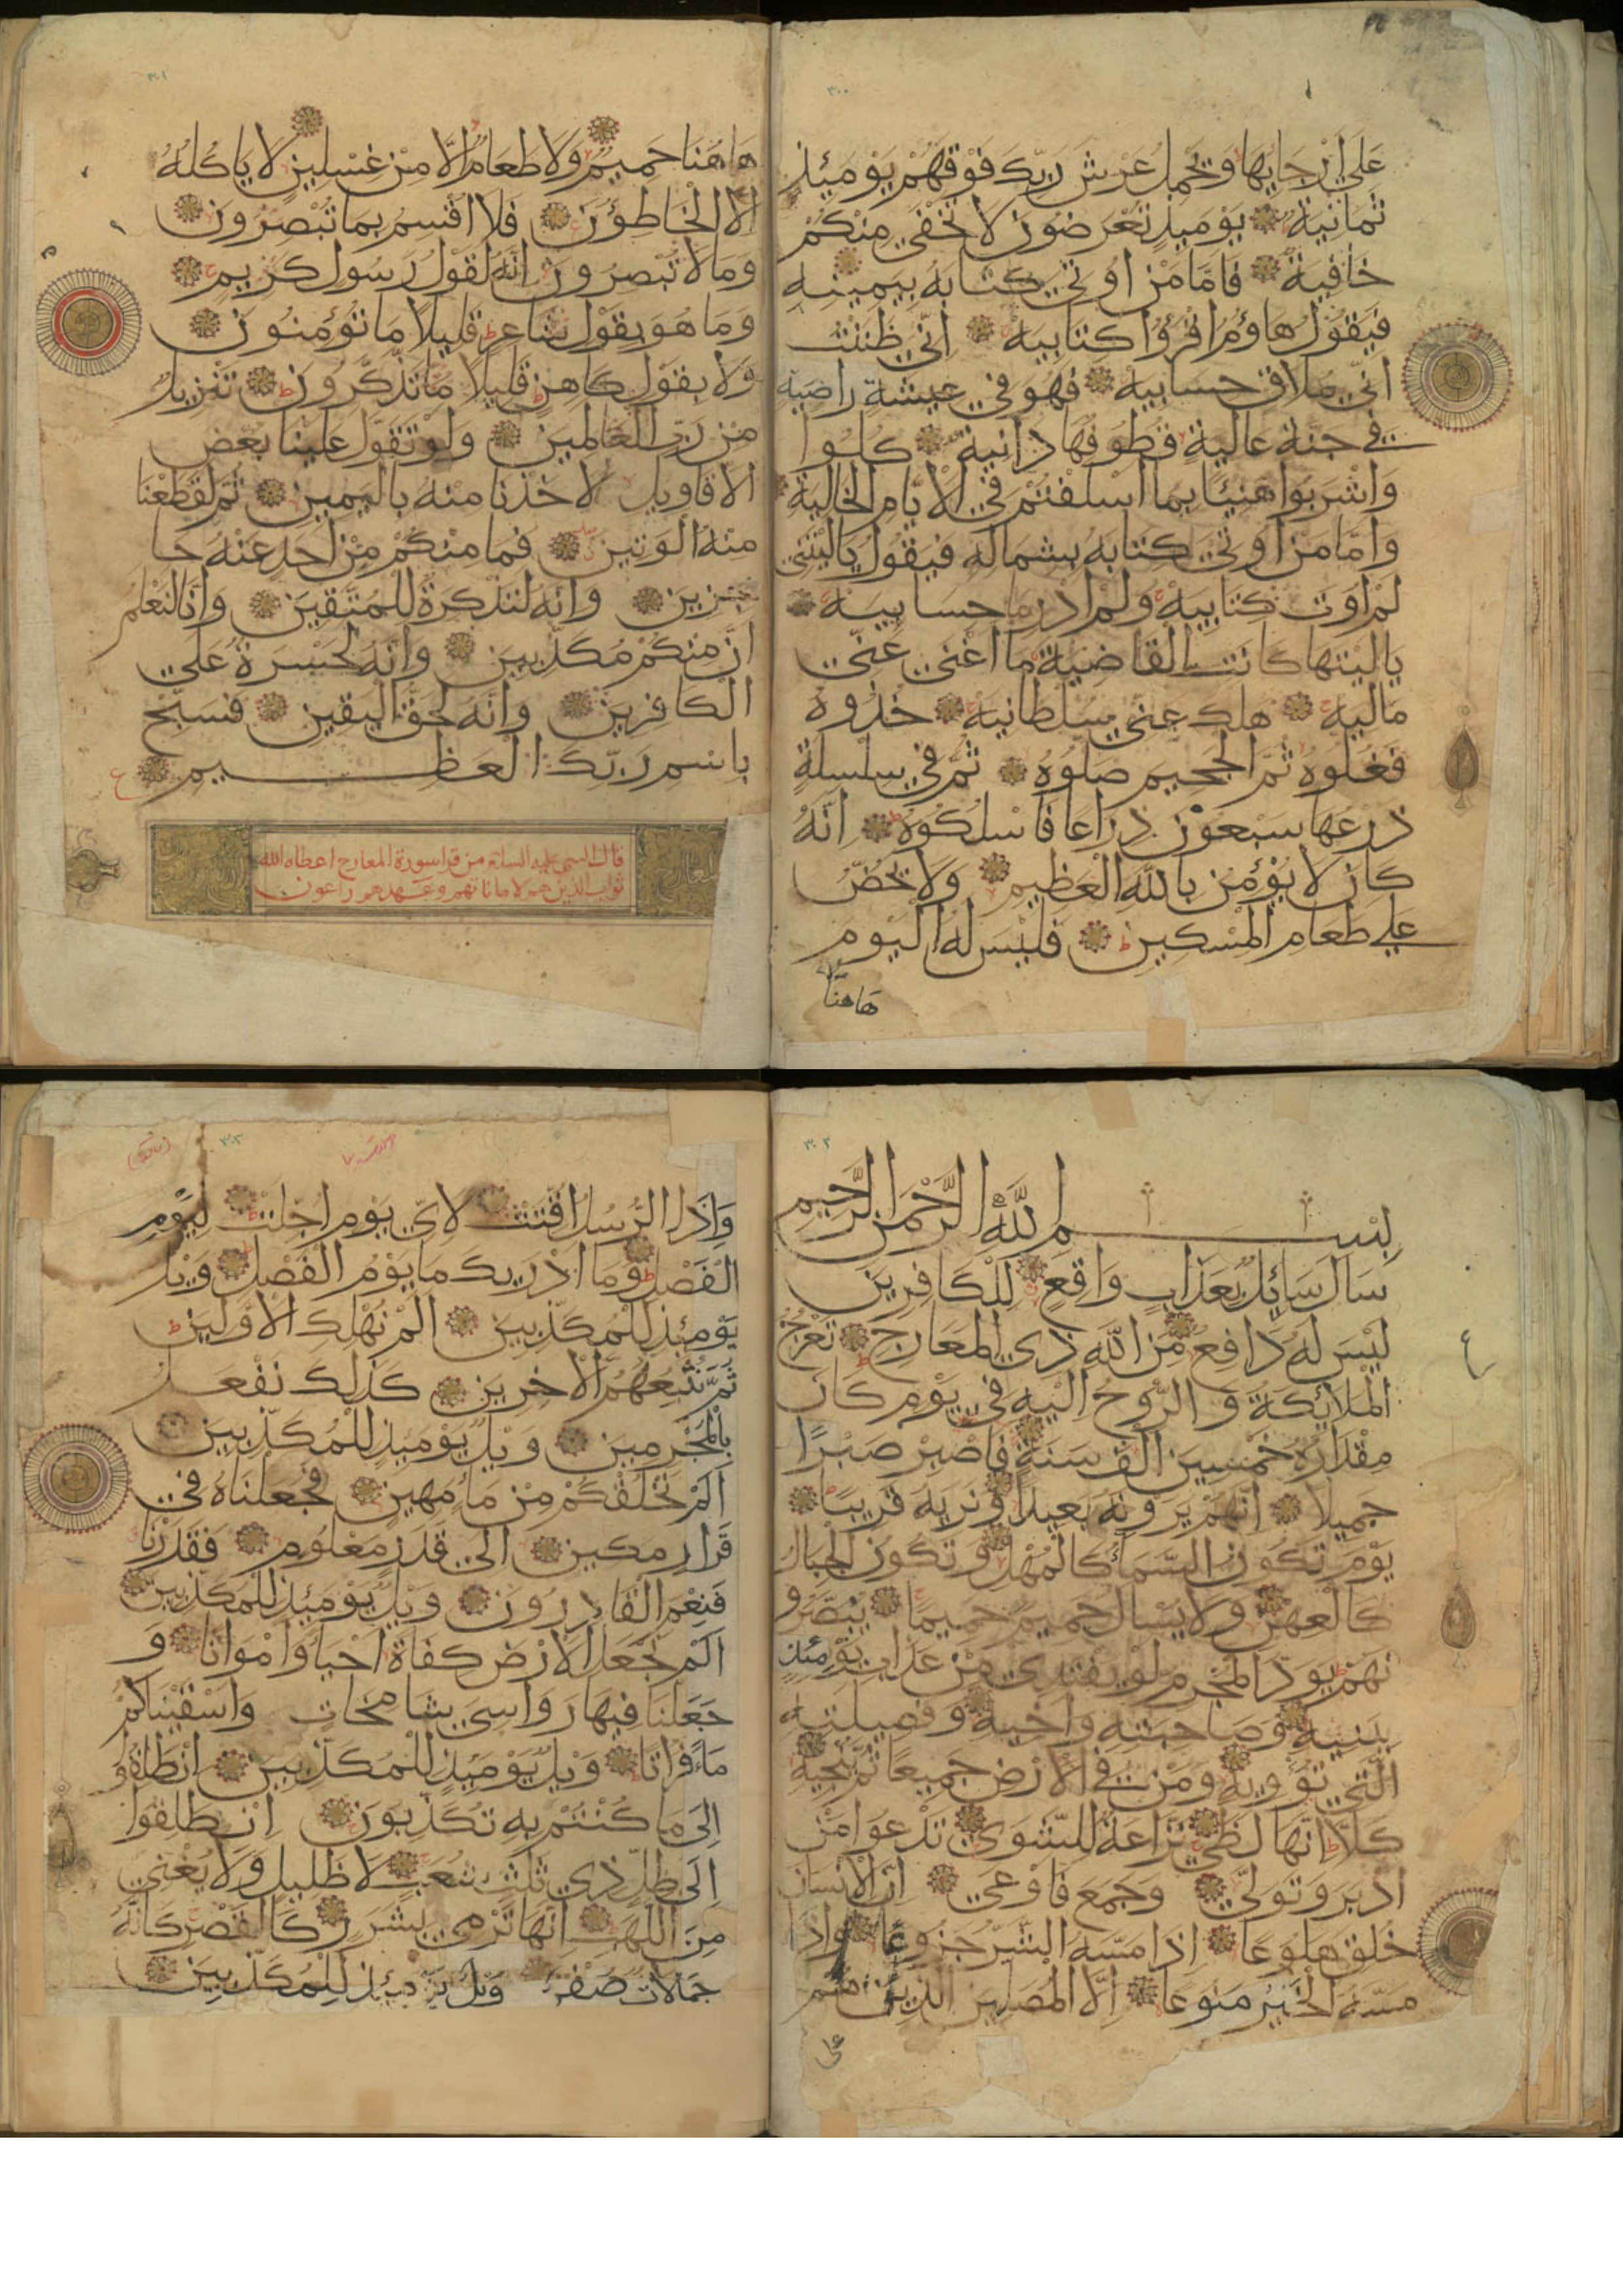 ٣٠٠
عَلَى أَرْجَايِهَا وَيَحْمِلُ عَرْشَ رَبِّكَ فَوْقَهُمْ يَوْمَئِذٍ
ثَمَانِيَةٌ يَوْمَئِذٍ تُعْرَضُونَ لَا تَخْفَى مِنْكُمْ
خَافِيَةٌ فَامَّا مَنْ اُوتِيَ كِتَابَهُ بِيَمِينِهِ
فَيَقُولُ هَاؤُمُ اقْرَؤُا كِتَابِيَهْ اِنِّي ظَنَنْتُ
اَنِّي مُلَاقٍ حِسَابِيَهْ فَهُوَ فِي عِيشَةٍ رَاضِيَةٍ
فِي جَنَّةٍ عَالِيَةٍ قُطُوفُهَا دَانِيَةٌ كُلُوا
وَاشْرَبُوا هَنِيئًا بِمَا اَسْلَفْتُمْ فِي الْاَيَّامِ الْخَالِيَةِ
وَاَمَّا مَنْ اُوتِيَ كِتَابَهُ بِشِمَالِهِ فَيَقُولُ يَالَيْتَنِي
لَمْ اُوتَ كِتَابِيَهْ وَلَمْ اَدْرِ مَا حِسَابِيَهْ
يَالَيْتَهَا كَانَتِ الْقَاضِيَةَ مَا اَغْنَى عَنِّي
مَالِيَهْ هَلَكَ عَنِّي سُلْطَانِيَهْ خُذُوهُ
فَغُلُّوهُ ثُمَّ الْجَحِيمَ صَلُّوهُ ثُمَّ فِي سِلْسِلَةٍ
ذَرْعُهَا سَبْعُونَ ذِرَاعًا فَاسْلُكُوهُ اِنَّهُ
كَانَ لَا يُؤْمِنُ بِاللَّهِ الْعَظِيمِ وَلَا يَحُضُّ
عَلَى طَعَامِ الْمِسْكِينِ فَلَيْسَ لَهُ الْيَوْمَ
هَاهُنَا
٣٠١
هَاهُنَا حَمِيمٌ وَلَا طَعَامٌ اِلَّا مِنْ غِسْلِينٍ لَا يَاكُلُهُ
اِلَّا الْخَاطِؤُنَ فَلَا اُقْسِمُ بِمَا تُبْصِرُونَ
وَمَا لَا تُبْصِرُونَ اِنَّهُ لَقَوْلُ رَسُولٍ كَرِيمٍ
وَمَا هُوَ بِقَوْلِ شَاعِرٍ قَلِيلًا مَا تُؤْمِنُونَ
وَلَا بِقَوْلِ كَاهِنٍ قَلِيلًا مَا تَذَكَّرُونَ تَنْزِيلٌ
مِنْ رَبِّ الْعَالَمِينَ وَلَوْ تَقَوَّلَ عَلَيْنَا بَعْضَ
الْاَقَاوِيلِ لَاَخَذْنَا مِنْهُ بِالْيَمِينِ ثُمَّ لَقَطَعْنَا
مِنْهُ الْوَتِينَ فَمَا مِنْكُمْ مِنْ اَحَدٍ عَنْهُ حَا
جِزِينَ وَاِنَّهُ لَتَذْكِرَةٌ لِلْمُتَّقِينَ وَاِنَّا لَنَعْلَمُ
اَنَّ مِنْكُمْ مُكَذِّبِينَ وَاِنَّهُ لَحَسْرَةٌ عَلَى
الْكَافِرِينَ وَاِنَّهُ لَحَقُّ الْيَقِينِ فَسَبِّحْ
بِاسْمِ رَبِّكَ الْعَظِيمِ
قال النبي عليه السلام من قرا سورة المعارج اعطاه الله
ثواب الذين هم لاماناتهم وعهدهم راعون
٣٠٢
بِسْمِ اللَّهِ الرَّحْمَنِ الرَّحِيمِ
سَاَلَ سَائِلٌ بِعَذَابٍ وَاقِعٍ لِلْكَافِرِينَ
لَيْسَ لَهُ دَافِعٌ مِنَ اللَّهِ ذِي الْمَعَارِجِ تَعْرُجُ
الْمَلَائِكَةُ وَالرُّوحُ اِلَيْهِ فِي يَوْمٍ كَانَ
مِقْدَارُهُ خَمْسِينَ اَلْفَ سَنَةٍ فَاصْبِرْ صَبْرًا
جَمِيلًا اِنَّهُمْ يَرَوْنَهُ بَعِيدًا وَنَرَيهُ قَرِيبًا
يَوْمَ تَكُونُ السَّمَاءُ كَالْمُهْلِ وَتَكُونُ الْجِبَالُ
كَالْعِهْنِ وَلَا يَسْاَلُ حَمِيمٌ حَمِيمًا يُبَصَّرُو
نَهُمْ يَوَدُّ الْمُجْرِمُ لَوْ يَفْتَدِي مِنْ عَذَابِ يَوْمَئِذٍ
بِبَنِيهِ وَصَاحِبَتِهِ وَاَخِيهِ وَفَصِيلَتِهِ
الَّتِي تُؤْوِيهِ وَمَنْ فِي الْاَرْضِ جَمِيعًا ثُمَّ يُنْجِيهِ
كَلَّا اِنَّهَا لَظَى نَزَّاعَةً لِلشَّوَى تَدْعُوا مَنْ
اَدْبَرَ وَتَوَلَّى وَجَمَعَ فَاَوْعَى اِنَّ الْاِنْسَانَ
خُلِقَ هَلُوعًا اِذَا مَسَّهُ الشَّرُّ جَزُوعًا وَاِذَا
مَسَّهُ الْخَيْرُ مَنُوعًا اِلَّا الْمُصَلِّينَ الَّذِينَ هُمْ
على
٣٠٣
وَاِذَا الرُّسُلُ اُقِّتَتْ لِاَيِّ يَوْمٍ اُجِّلَتْ لِيَوْمِ
الْفَصْلِ وَمَا اَدْرَيكَ مَا يَوْمُ الْفَصْلِ وَيْلٌ
يَوْمَئِذٍ لِلْمُكَذِّبِينَ اَلَمْ نُهْلِكِ الْاَوَّلِينَ
ثُمَّ نُتْبِعُهُمُ الْاَخِرِينَ كَذَلِكَ نَفْعَلُ
بِالْمُجْرِمِينَ وَيْلٌ يَوْمَئِذٍ لِلْمُكَذِّبِينَ
اَلَمْ نَخْلُقْكُمْ مِنْ مَاءٍ مَهِينٍ فَجَعَلْنَاهُ فِي
قَرَارٍ مَكِينٍ اِلَى قَدَرٍ مَعْلُومٍ فَقَدَرْنَا
فَنِعْمَ الْقَادِرُونَ وَيْلٌ يَوْمَئِذٍ لِلْمُكَذِّبِينَ
اَلَمْ نَجْعَلِ الْاَرْضَ كِفَاتًا اَحْيَاءً وَاَمْوَاتًا وَ
جَعَلْنَا فِيهَا رَوَاسِيَ شَامِخَاتٍ وَاَسْقَيْنَاكُمْ
مَاءً فُرَاتًا وَيْلٌ يَوْمَئِذٍ لِلْمُكَذِّبِينَ اِنْطَلِقُوا
اِلَى مَا كُنْتُمْ بِهِ تُكَذِّبُونَ اِنْطَلِقُوا
اِلَى ظِلٍّ ذِي ثَلَثِ شُعَبٍ لَا ظَلِيلٍ وَلَا يُغْنِي
مِنَ اللَّهَبِ اِنَّهَا تَرْمِي بِشَرَرٍ كَالْقَصْرِ كَاَنَّهُ
جِمَالَاتٌ صُفْرٌ وَيْلٌ يَوْمَئِذٍ لِلْمُكَذِّبِينَ